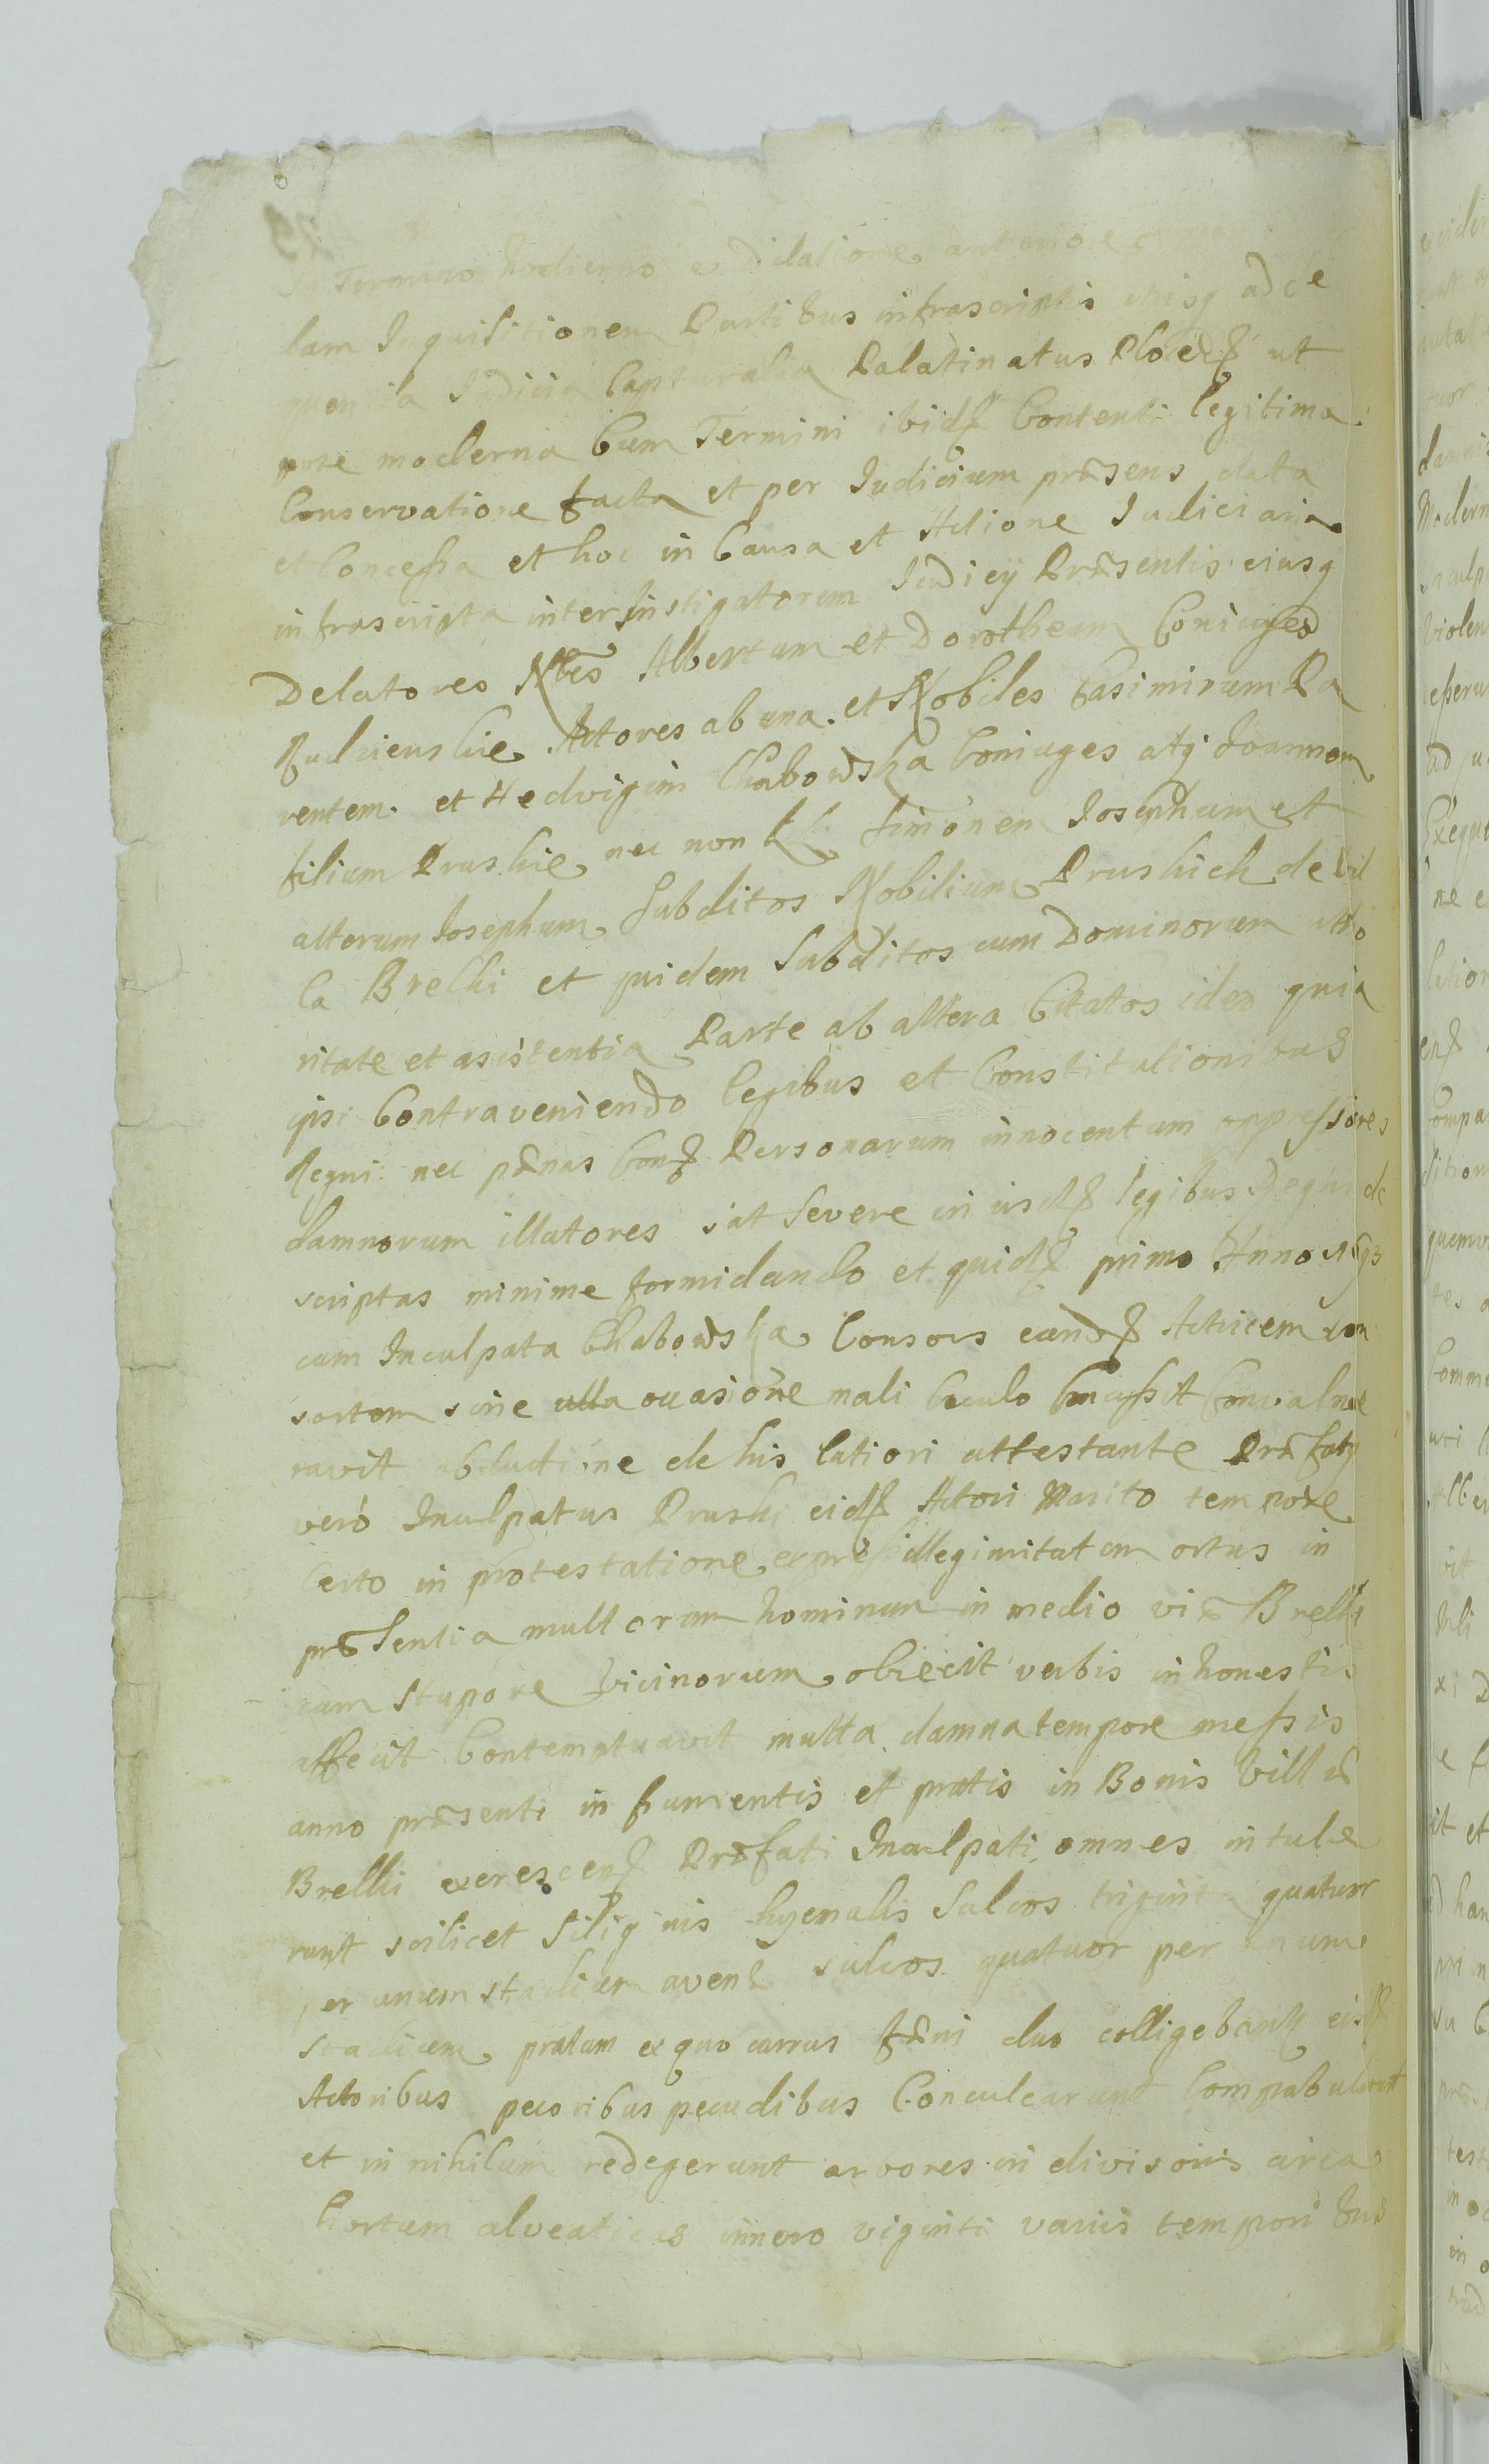 In Termino hodierno e dilatione anteriore
lam Inquisitionem Partibus infrascriptis utrisq ad
Judicia Capturalia Palatinatus Plocen ut
pore moderna Cum Termini ibidem Contenti legitima
Conservatione facta et per Judicium præsens data
et Concessa et hoc in Causa et Actione Judiciaria
infrascripta inter Instigatorem Judicij Præsentis eiusq
Delatores Nbles Albertum et Dorotheam Coniuges
Rudzienskie Actores ab una et Nobiles Casimirum Pa
rentem et Hedvigim Chabowska Coniuges atq Joannem
filium Pruskie nec non LL Simonem Josephum et
alterum Josephum Subditos Nobilium Pruskich de Vil
la Brelki et quidem Subditos cum Dominorum utho
ritate et asistentia Parte ab altera Citatos ideo quia
ipsi Contraveniendo legibus et Constitutionibus
Regni nec pænas Con Personarum innocentum oppressores
damnorum illatores sat severe in iisd legibus Regni de
scriptas minime formidando et quid primo Anno
cum Inculpata Chabowska Consors eand Actricem con
sortem sine ulla occasione mali baculo Concussit Convulne
ravit obductione de his latiori attestante Præfatq
verò Inculpatus Pruski eid Actori Marito tempore
Certo in protestatione express illegimitatem ortus in
præsentia multorum hominum in medio viæ Brelki
cum stupore Vicinorum obiecit verbis inhonestis
affecit Contemptuavit multa damna tempore messis
anno præsenti in frumentis et pratis in Bonis Villæ
Brelki excrescen Præfati Inculpati omnes intule
runt scilicet Siliginis hyemalis Sulcos triginta quatuor
per unum stadium avenæ sulcos quatuor per unum
stadium pratum ex quo currus fæni duo colligebant eisd
Actoribus pecoribus pecudibus Conculcarunt Compabularunt
et in nihilum redegerunt arbores in divisoriis circa
hortum alveaticas numero viginti variis temporibus